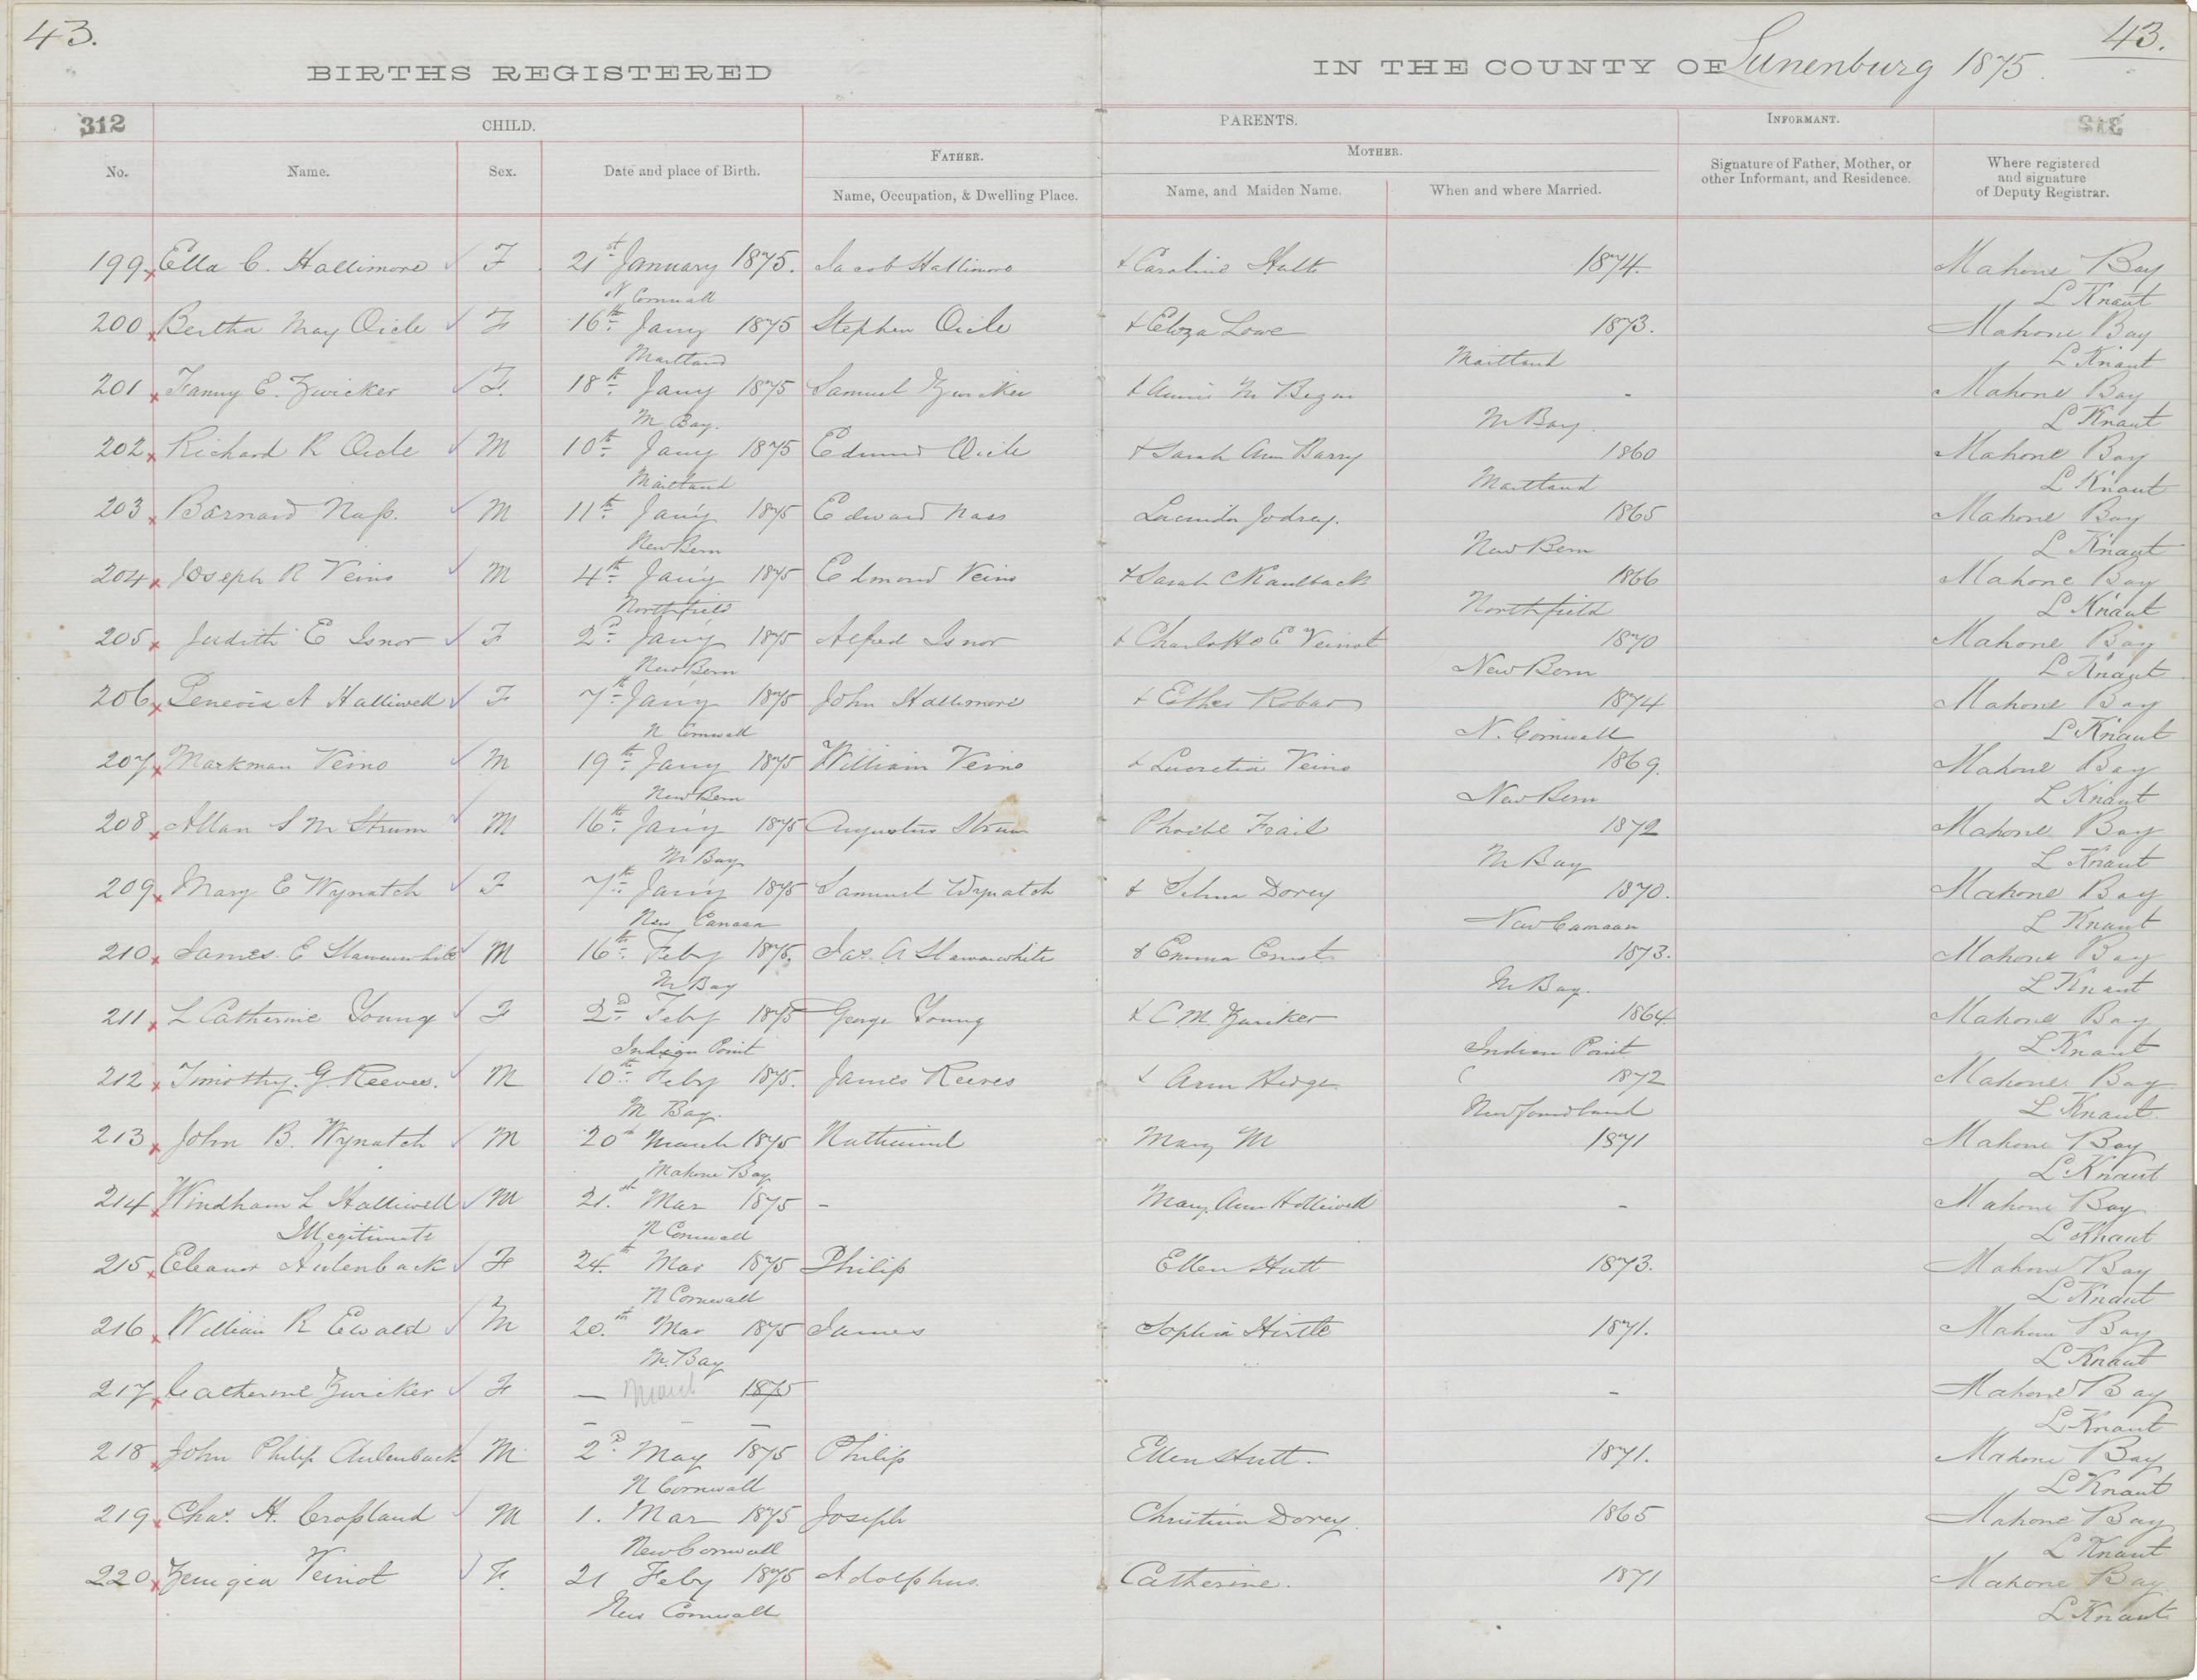 43.
43.
BIRTHS REGISTERED
IN THE COUNTY OF Lunenburg 1875.
312
CHILD.
PARENTS.
INFORMANT.
312
No.
Name.
Sex.
Date and place of Birth.
FATHER.
Name, Occupation, & Dwelling Place.
MOTHER.
Name, and Maiden Name.
When and where Married.
Signature of Father, Mother, or
other Informant, and Residence.
Where registered
and signature
of Deputy Registrar.
199 Ella C. Hallimore F 21st January 1875. Jacob Hallimore & Caroline 1874 Mahone Bay
N Cornwall L Knaut
200 Bertha May Oicle F 16th Jany 1875 Stephen Oicle & Eliza Lowe 1873. Mahone Bay
Maitland Maitland L Knaut
201 Fanny E. Zwicker F. 18th Jany 1875 Samuel Zwicker & Annie M - Mahone Bay
M Bay. M Bay. L Knaut
202 Richard R Oicle M 10th Jany 1875 Edmund Oicle & Sarah Ann Barry 1860 Mahone Bay
Maitland Maitland L Knaut
203 Barnard Nass. M 11th Jany 1875 Edward Nass Lucinda Jodrey. 1865 Mahone Bay
New Bern New Bern L Knaut
204 Joseph R Veino M 4th Jany 1875 Edmond Veino & Sarah C Kaulback 1866 Mahone Bay
Northfield Northfield L Knaut
205 Judith E Isnor F 2d Jany 1875 Alfred Isnor & Charlotte E Veinot 1870 Mahone Bay
New Bern New Bern L Knaut
206 A Halliwell F 7th Jany 1875 John Hallimore & Esther Robar 1874 Mahone Bay
N Cornwall N. Cornwall L Knaut
207 Markman Veino M 19th Jany 1875 William Veino & Lucretia Veino 1869. Mahone Bay
New Bern New Bern L Knaut
208 Allan S M Strum M 16th Jany 1875 Augustus Strum Phoebe Frail 1872 Mahone Bay
M Bay M Bay L Knaut
209 Mary E Wynatch F 7th Jany 1875 Samuel Wynatch & Selma Dorey 1870. Mahone Bay
New Canaan New Canaan L Knaut
210 James E Slawenwhite M 16th Feby 1875, Jas. A Slawenwhite & Emma Ernst 1873. Mahone Bay
M Bay M Bay. L Knaut
211 L Catherine Young F 2d Feby 1875 George Young & C.M. Zwicker 1864 Mahone Bay
Indian Point Indian Point L Knaut
212 Timothy. G. Reeves. M 10th Feby 1875. James Reeves & Ann 1872 Mahone Bay
M Bay. Newfoundland L Knaut
213 John B. Wynatch M 20th March 1875 Nathaniel Mary M 1871 Mahone Bay
Mahone Bay L Knaut
214 Windham L Halliwell M 21.st Mar 1875 - Mary Ann Halliwell - Mahone Bay
Illegitimate N Cornwall L Knaut
215 Eleanor Aulenback F 24.th Mar 1875 Philip Ellen Hutt 1873. Mahone Bay
N Cornwall L Knaut
216 William R Ewald M 20.th Mar 1875 James Sophia Hirtle 1871. Mahone Bay
M. Bay L Knaut
217 Catherine Zwicker F — March 1875 - Mahone Bay
— — — L Knaut
218 John Philip Aulenback M 2d May 1875 Philip Ellen Hutt. 1871. Mahone Bay
N Cornwall L Knaut
219 Chas. H. Crossland M 1. Mar 1875 Joseph Christina Dorey. 1865 Mahone Bay
New Cornwall L Knaut
220 Veinot F. 21 Feby 1875 Adolphus Catherine. 1871 Mahone Bay
New Cornwall L Knaut